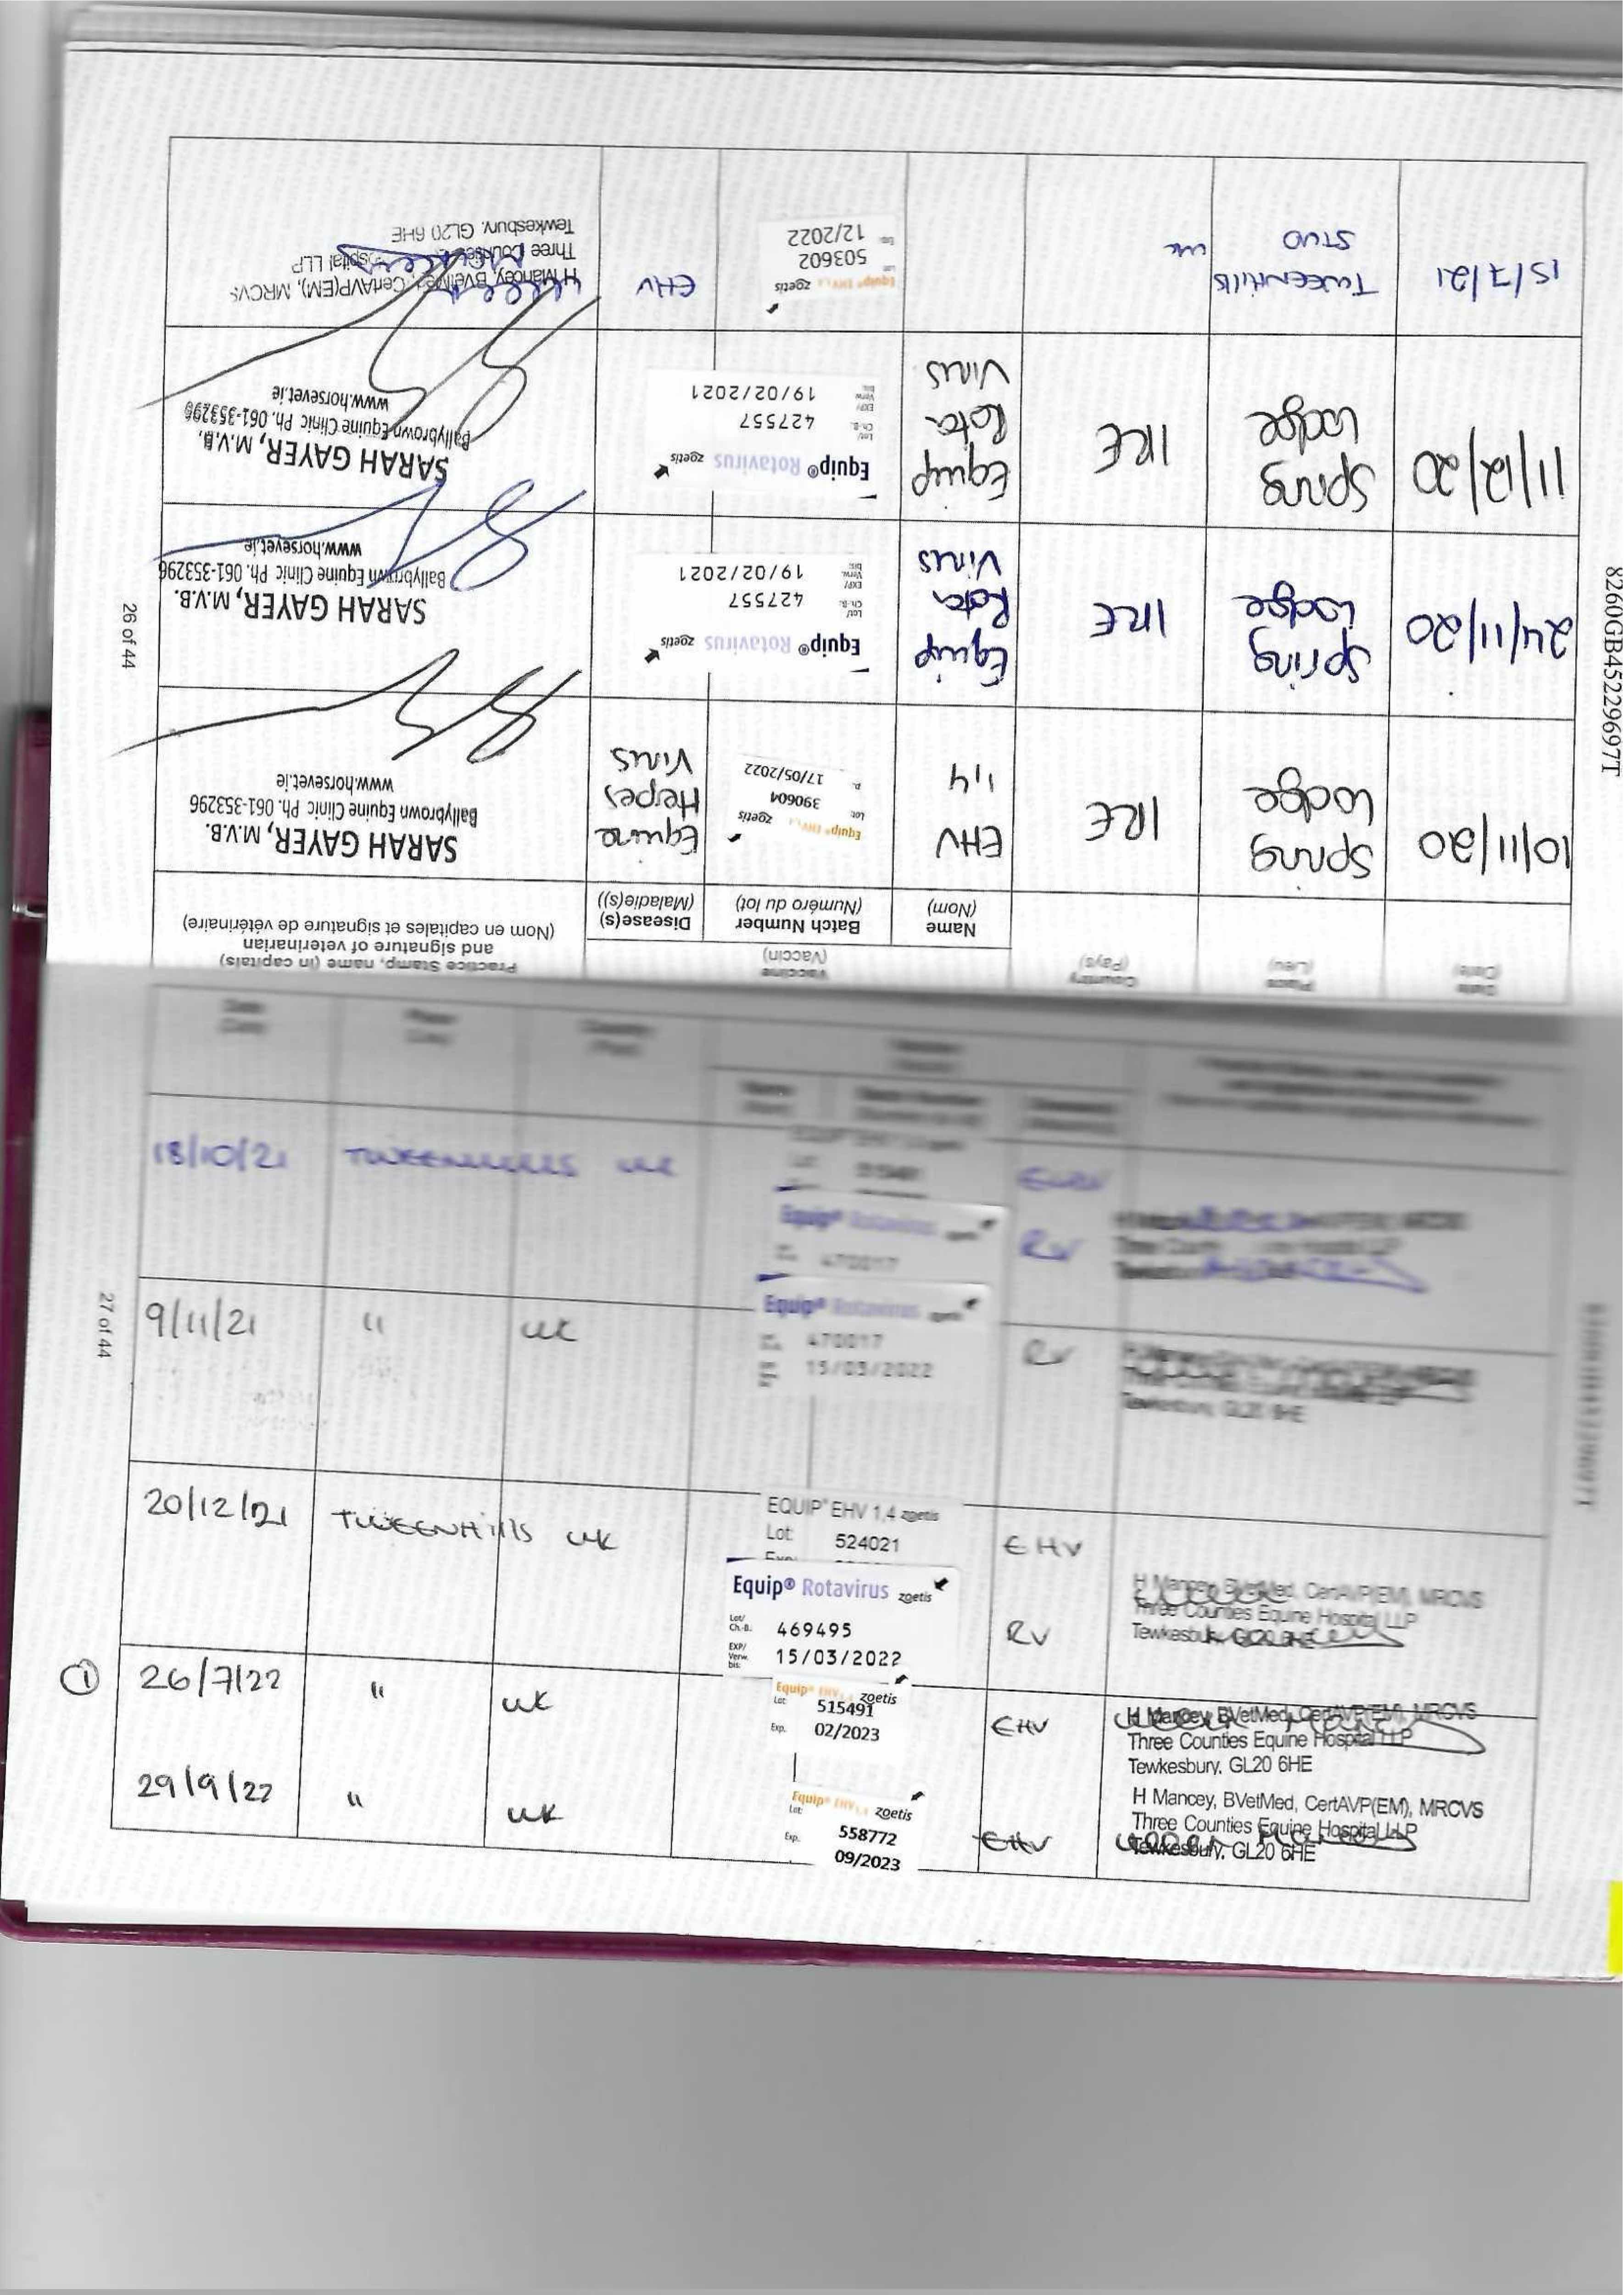 8260GB45229697T
26 of 44
Date
(Date)
Place
(Lieu)
Country
(Pays)
Vaccine
(Vaccin)
Name
(Nom)
Batch Number
(Numéro du lot)
Disease(s)
(Maladie(s))
Practice Stamp, name (in capitals)
and signature of veterinarian
(Nom en capitales et signature de vétérinaire)
10/11/20
Spring
Lodge
IRE
EHV
1,4
Equip® EHV 1,4 zoetis
Lot: 390604
17/05/2022
Equine
Herpes
Virus
SARAH GAYER, M.V.B.
Ballybrown Equine Clinic Ph. 061-353296
www.horsevet.ie
24/11/20
Spring
Lodge
IRE
Equip
Rota
Virus
Equip® Rotavirus zoetis
Lot/
Ch.-B.: 427557
EXP/
Verw.
bis: 19/02/2021
SARAH GAYER, M.V.B.
Ballybrown Equine Clinic Ph. 061-353296
www.horsevet.ie
11/12/20
Spring
Lodge
IRE
Equip
Rota
Virus
Equip® Rotavirus zoetis
Lot/
Ch.-B.: 427557
EXP/
Verw.
bis: 19/02/2021
SARAH GAYER, M.V.B.
Ballybrown Equine Clinic Ph. 061-353296
www.horsevet.ie
15/7/21
TWEENHills
STUD
UK
Equip® EHV 1,4 zoetis
Lot: 503602
Exp. 12/2022
EHV
H Mancey, BVetMed, CertAVP(EM), MRCVS
Three Counties Hospital LLP
Tewkesbury. GL20 6HE
27 of 44
18/10/21 TWEENHILLS UK
EQUIP® EHV 1,4 zoetis
Equip® Rotavirus zoetis
470017
RV
9/11/21 " UK
Equip® Rotavirus zoetis
470017
15/03/2022
RV
Tewkesbury, GL20 6HE
20/12/21 TWEENHills UK
EQUIP® EHV 1,4 zoetis
Lot: 524021
EHV
Equip® Rotavirus zoetis
Lot/
Ch.-B.: 469495
EXP/
Verw.
bis: 15/03/2022
RV
H Mancey, BVetMed, CertAVP(EM), MRCVS
Three Counties Equine Hospital LLP
Tewkesbury, GL20 6HE
1 26/7/22 " UK
Equip® EHV 1,4 zoetis
Lot: 515491
Exp. 02/2023
EHV
H Mancey, BVetMed, CertAVP(EM), MRCVS
Three Counties Equine Hospital LLP
Tewkesbury, GL20 6HE
29/9/22 " UK
Equip® EHV 1,4 zoetis
Lot: 558772
Exp. 09/2023
EHV
H Mancey, BVetMed, CertAVP(EM), MRCVS
Three Counties Equine Hospital LLP
Tewkesbury, GL20 6HE